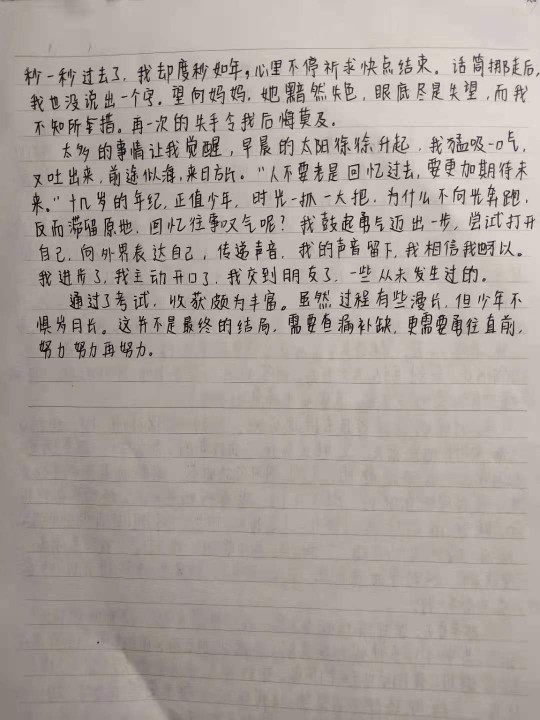 秒一秒过去了，我却度秒如年，心里不停祈求快点结束。话筒挪走后，
我也没说出一个字。望向妈妈，她黯然失色，眼底尽是失望，而我
不知所措。再一次的失手令我后悔莫及。
太多的事情让我觉醒，早晨的太阳徐徐升起，我猛吸一口气，
又吐出来，前途似海，来日方长。“人不要老是回忆过去，要更加期待未
来。”十几岁的年纪，正值少年，时光一抓一大把，为什么不向光奔跑，
反而滞留原地，回忆往事叹气呢？我鼓起勇气迈出一步，尝试打开
自己，向外界表达自己，传递声音，我的声音留下，我相信我可以。
我进步了，我主动开口了，我交到朋友了，一些从未发生过的。
通过了考试，收获颇为丰富。虽然过程有些漫长，但少年不
惧岁月长。这并不是最终的结局，需要查漏补缺，更需要勇往直前，
努力努力再努力。